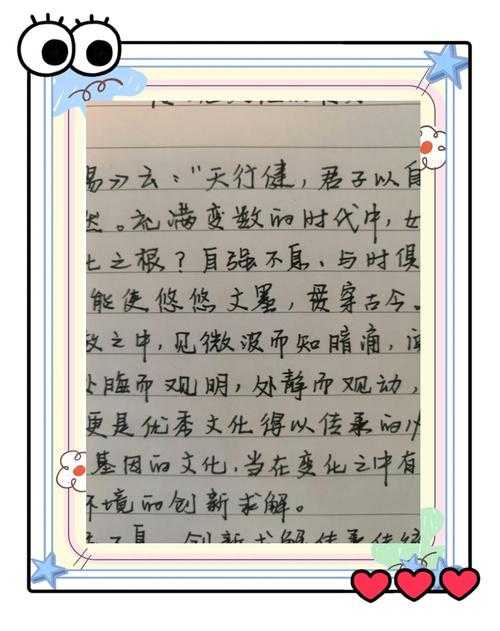 易》云：“天行健，君子以自
。充满变数的时代中，
之根？自强不息、与时俱
能使悠悠文墨，贯穿古今。
之中，见微波而知暗涌，
处晦而观明，处静而观动，
更是优秀文化得以传承的
基因的文化，当在变化之中有
环境的创新求解。
创新求解传承传统